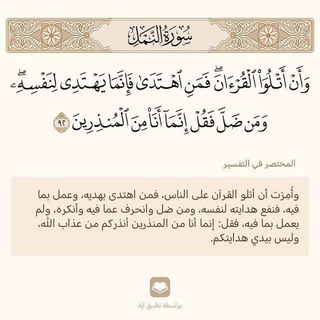 سُورَةُ النَّمْلِ
وَأَنْ أَتْلُوَا۟ ٱلْقُرْءَانَ ۖ فَمَنِ ٱهْتَدَىٰ فَإِنَّمَا يَهْتَدِى لِنَفْسِهِۦ ۖ
وَمَن ضَلَّ فَقُلْ إِنَّمَآ أَنَا۠ مِنَ ٱلْمُنذِرِينَ ٩٢
المختصر في التفسير
وأُمِرَت أن أتلو القرآن على الناس، فمن اهتدى بهديه، وعمل بما
فيه، فنفع هدايته لنفسه، ومن ضل وانحرف عما فيه وأنكره، ولم
يعمل بما فيه، فقل: إنما أنا من المنذرين أنذركم من عذاب الله،
وليس بيدي هدايتكم.
بواسطة تطبيق آية